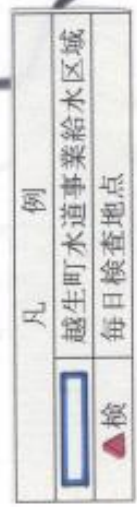 凡 例
越生町水道事業給水区域
▲検 毎日検査地点